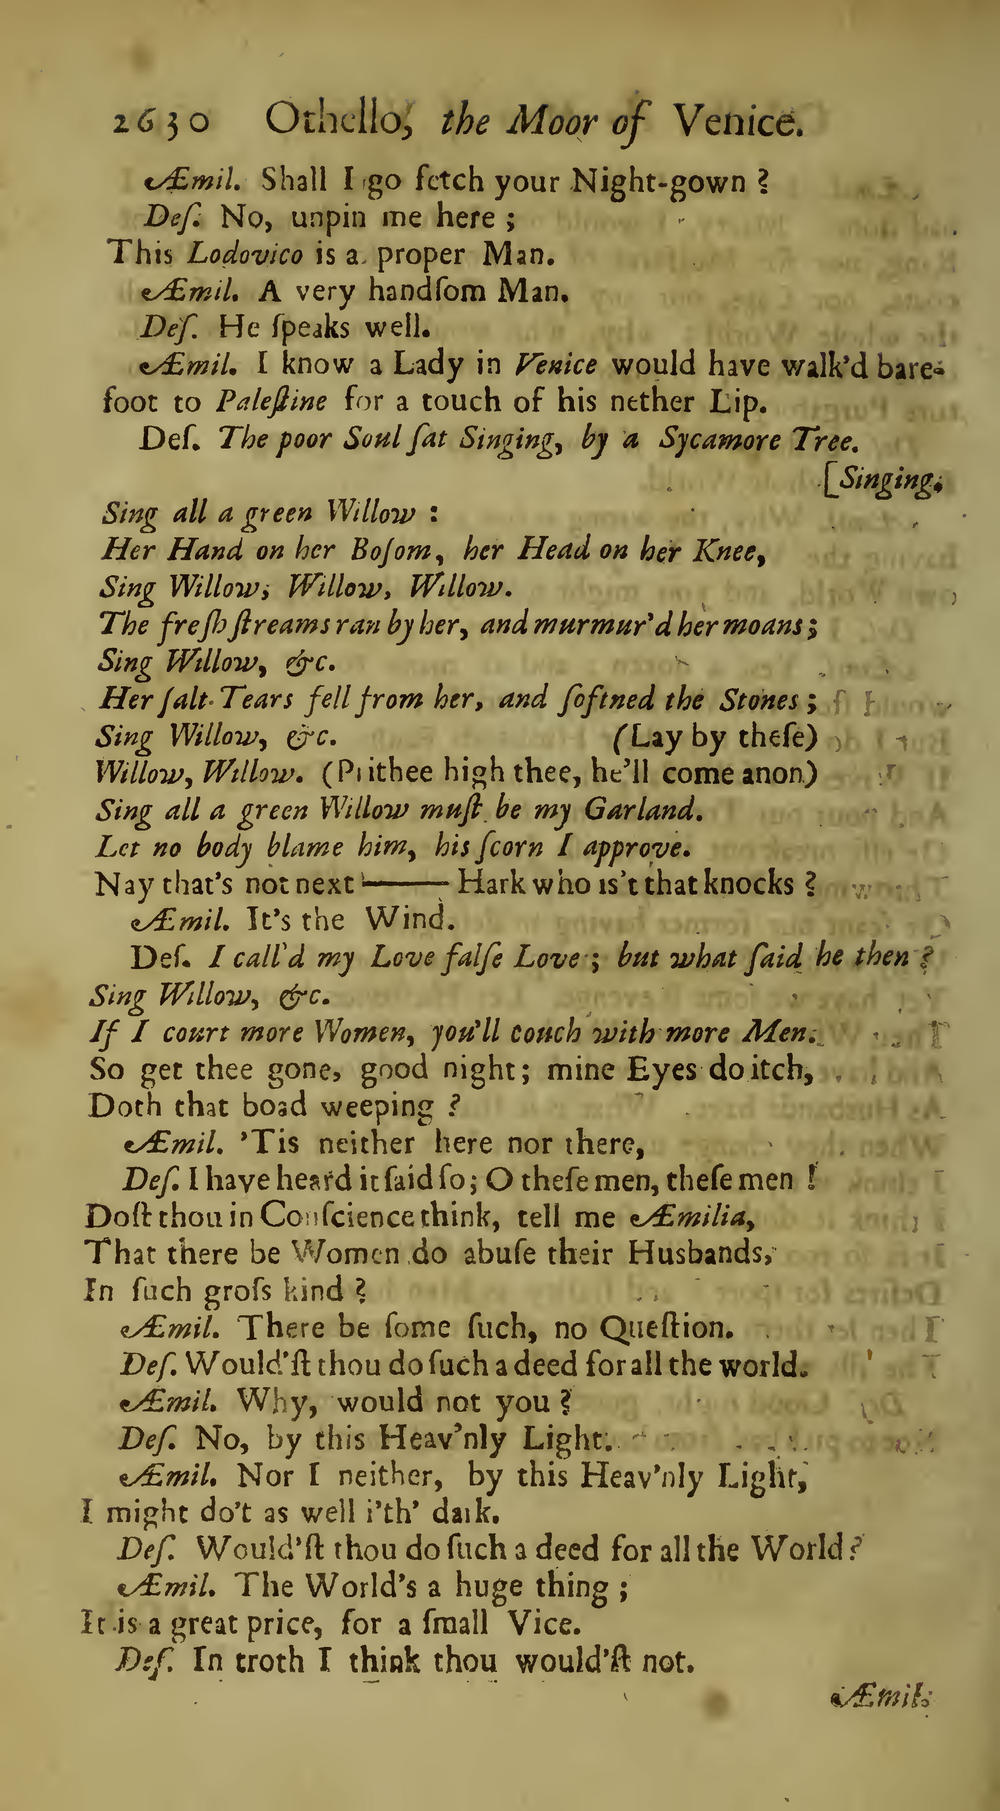 2630 Othello, the Moor of Venice.
Æmil. Shall I go fetch your Night-gown ?
Deſ. No, unpin me here ;
This Lodovico is a proper Man.
Æmil. A very handſom Man.
Deſ. He ſpeaks well.
Æmil. I know a Lady in Venice would have walk'd bare-
foot to Paleſtine for a touch of his nether Lip.
Deſ. The poor Soul ſat Singing, by a Sycamore Tree.
[Singing.
Sing all a green Willow :
Her Hand on her Boſom, her Head on her Knee,
Sing Willow, Willow, Willow.
The freſh ſtreams ran by her, and murmur'd her moans ;
Sing Willow, &c.
Her ſalt Tears fell from her, and ſoftned the Stones ;
Sing Willow, &c. (Lay by theſe)
Willow, Willow. (Prithee high thee, he'll come anon)
Sing all a green Willow muſt be my Garland.
Let no body blame him, his ſcorn I approve.
Nay that's not next —— Hark who is't that knocks ?
Æmil. It's the Wind.
Deſ. I call'd my Love falſe Love ; but what ſaid he then ?
Sing Willow, &c.
If I court more Women, you'll couch with more Men.
So get thee gone, good night; mine Eyes do itch,
Doth that boad weeping ?
Æmil. 'Tis neither here nor there,
Deſ. I have heard it ſaid ſo; O theſe men, theſe men !
Doſt thou in Conſcience think, tell me Æmilia,
That there be Women do abuſe their Husbands,
In ſuch groſs kind ?
Æmil. There be ſome ſuch, no Queſtion.
Deſ. Would'ſt thou do ſuch a deed for all the world.
Æmil. Why, would not you ?
Deſ. No, by this Heav'nly Light.
Æmil. Nor I neither, by this Heav'nly Light,
I might do't as well i'th' dark.
Deſ. Would'ſt thou do ſuch a deed for all the World ?
Æmil. The World's a huge thing ;
It is a great price, for a ſmall Vice.
Deſ. In troth I think thou would'ſt not.
Æmil.